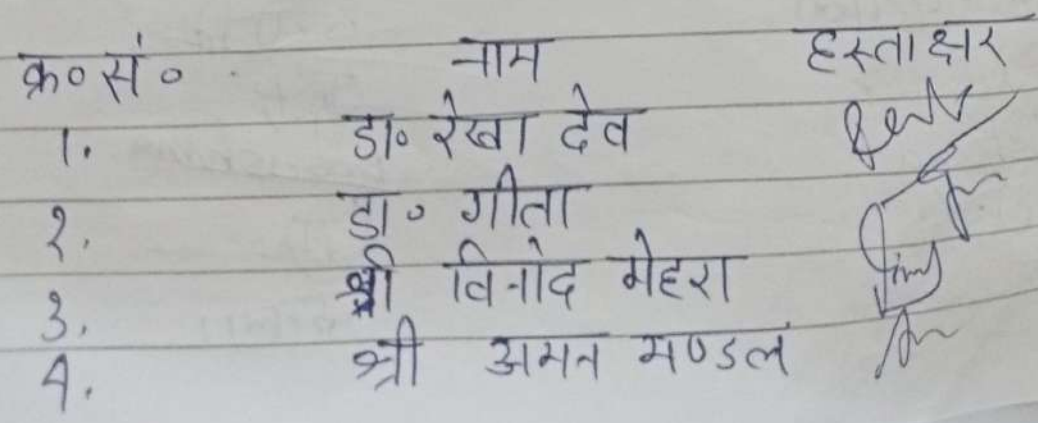 क्र० सं० नाम हस्ताक्षर
1. डा० रेखा देव
2. डा० गीता
3. श्री विनोद मेहरा
4. श्री अमन मण्डल